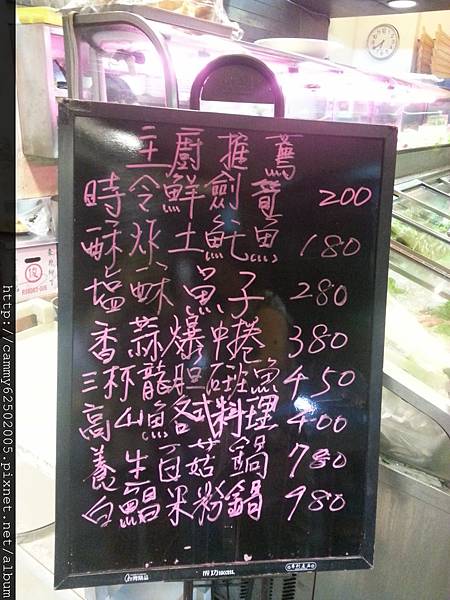 主廚推薦
時令鮮劍筍 200
酥炸土魠魚 180
塩酥魚子 280
香蒜爆中捲 380
三杯龍胆石班魚 450
高山魚各式料理 400
養生百菇鍋 780
白鯧米粉鍋 980
http://cammy62502005.pixnet.net/album